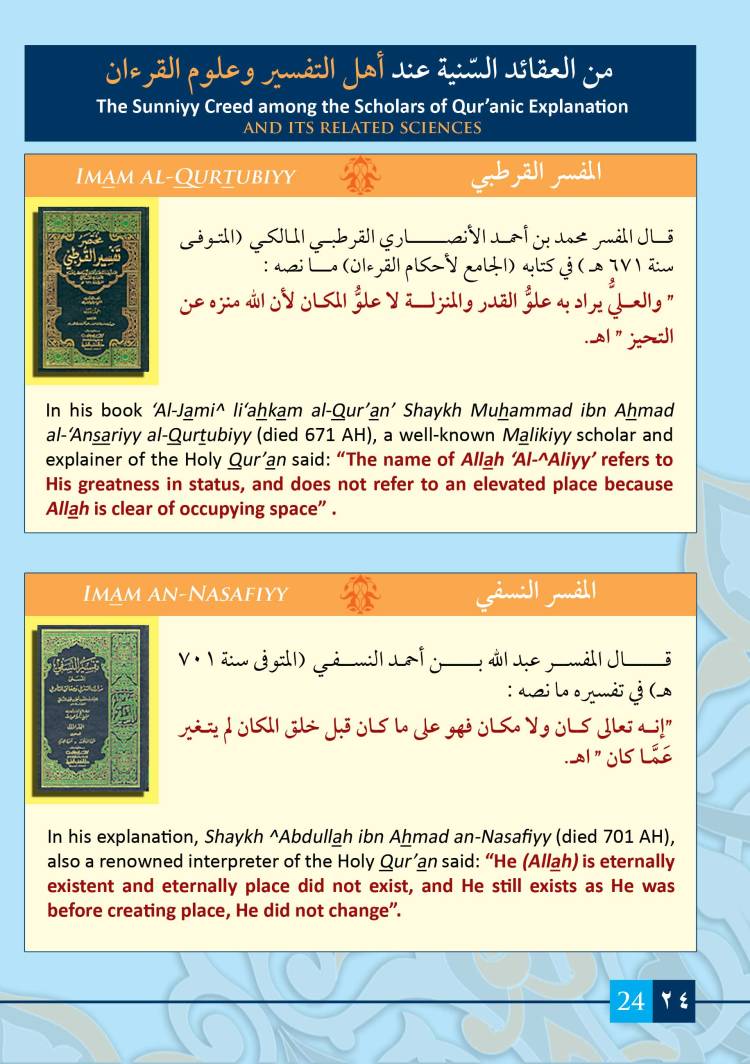 من العقائد السّنية عند أهل التفسير وعلوم القرءان
The Sunniyy Creed among the Scholars of Qur’anic Explanation
AND ITS RELATED SCIENCES
IMAM AL-QURTUBIYY
المفسر القرطبي
مختصر
تفسير القرطبي
قـال المفسر محمد بن أحمـد الأنصـــــاري القرطبـي المالكي (المتوفى
سنة ٦٧١ هـ) في كتابه (الجامع لأحكام القرءان) مـا نصه :
" والعـليُّ يراد به علوُّ القدر والمنزلـــة لا علوُّ المكـان لأن الله منزه عن
التحيز " اهـ.
In his book ‘Al-Jami^ li‘ahkam al-Qur’an’ Shaykh Muhammad ibn Ahmad
al-‘Ansariyy al-Qurtubiyy (died 671 AH), a well-known Malikiyy scholar and
explainer of the Holy Qur’an said: “The name of Allah ‘Al-^Aliyy’ refers to
His greatness in status, and does not refer to an elevated place because
Allah is clear of occupying space” .
IMAM AN-NASAFIYY
المفسر النسفي
تفسير النسفي
قـــــال المفســر عبد الله بـــــن أحمـد النسـفـي (المتوفى سنة ٧٠١
هـ) في تفسيره ما نصه :
"إنـه تعالى كـان ولا مكـان فهو على ما كـان قبل خلق المكان لم يتـغير
عَمَّـا كان " اهـ.
In his explanation, Shaykh ^Abdullah ibn Ahmad an-Nasafiyy (died 701 AH),
also a renowned interpreter of the Holy Qur’an said: “He (Allah) is eternally
existent and eternally place did not exist, and He still exists as He was
before creating place, He did not change”.
24 ٢٤